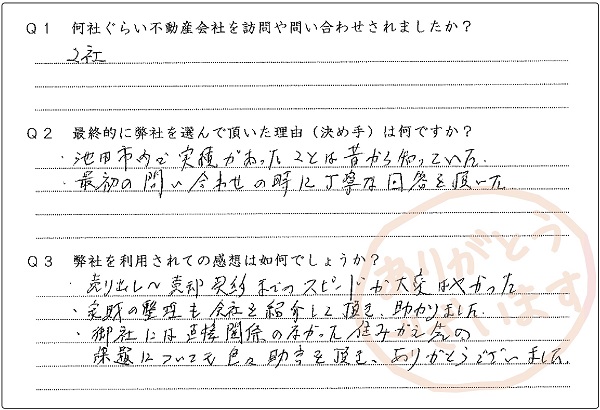 Q1 何社ぐらい不動産会社を訪問や問い合わせされましたか？
2社
Q2 最終的に弊社を選んで頂いた理由（決め手）は何ですか？
・池田市内で実積があったことは昔から知っていた.
・最初の問い合わせの時に丁寧な回答を頂いた
Q3 弊社を利用されての感想は如何でしょうか？
・売り出し〜売却契約までのスピードが大変はやかった
・家財の整理も会社を紹介して頂き、助かりました.
・御社には直接関係のなかった住みかえ先の
課題についても色々助言を頂き、ありがとうございました.
ありがとう
ございます